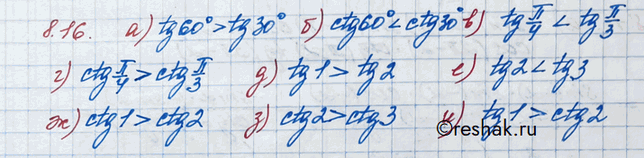 8.16. а) tg60°>tg30° б) ctg60°<ctg30° в) tg π/4 < tg π/3
г) ctg π/4 > ctg π/3 д) tg1 > tg2 е) tg2 < tg3
ж) ctg1 > ctg2 з) ctg2 > ctg3 и) tg1 > ctg2
©reshak.ru